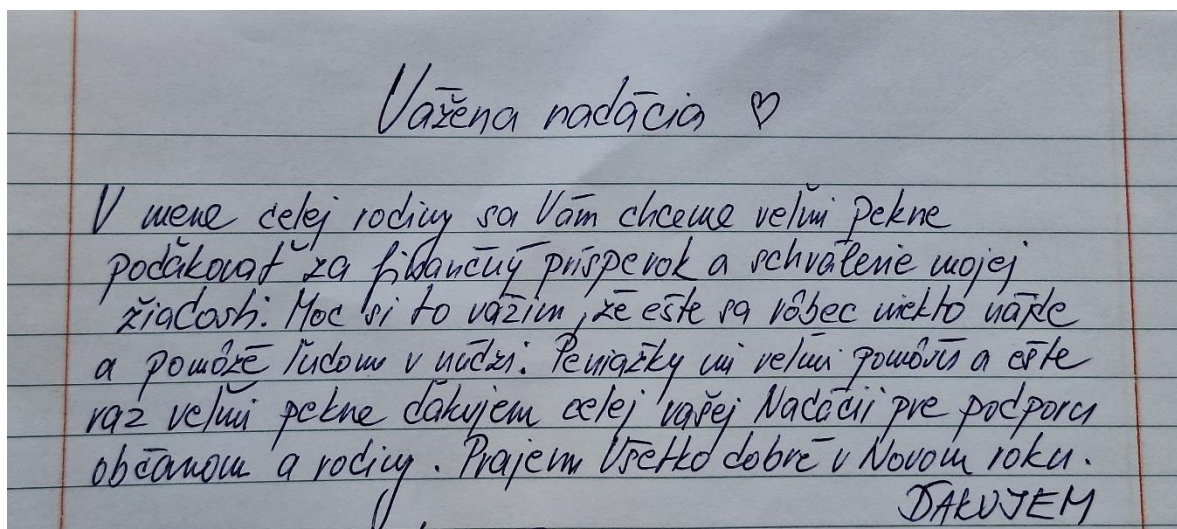 Vážena nadácia ♡
V mene celej rodiny sa Vám chceme veľmi pekne
poďakovať za finančný príspevok a schválenie mojej
žiadosti. Moc si to vážim, že ešte sa vôbec niekto nájde
a pomôže ľuďom v núdzi. Peniažky mi veľmi pomôžu a ešte
raz veľmi pekne ďakujem celej vašej Nadácii pre podporu
občanom a rodiny. Prajem Všetko dobré v Novom roku.
ĎAKUJEM